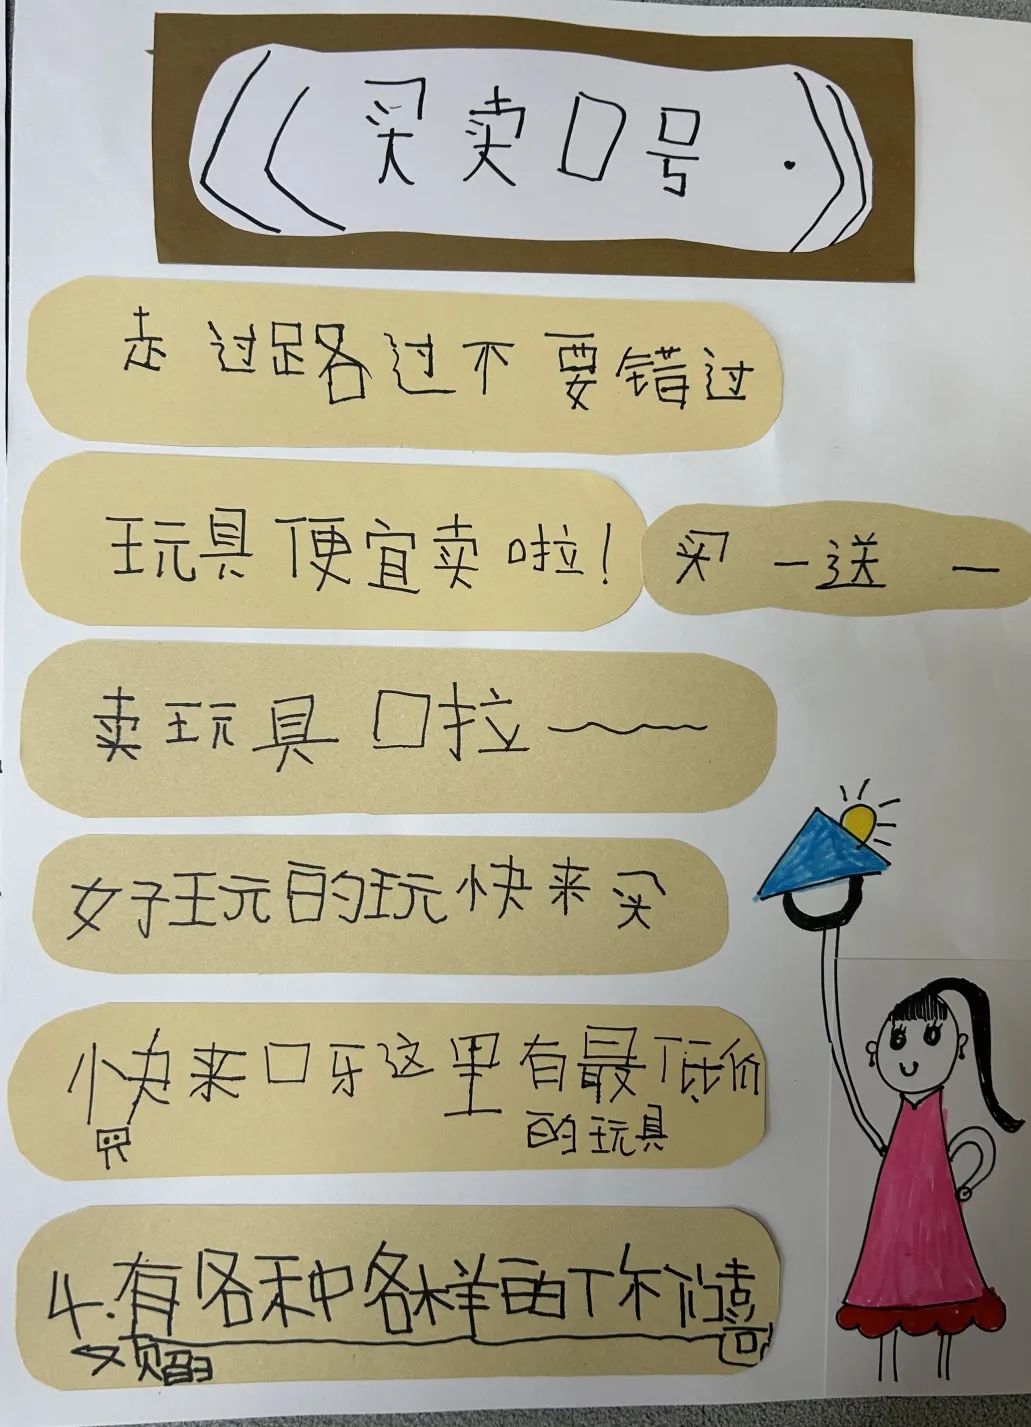 《买卖口号·》
走过路过不要错过
玩具便宜卖啦！ 买一送一
卖玩具啦～
好玩的玩快来买
快来呀这里有最低价
的玩具
4.有各种各样的你喜